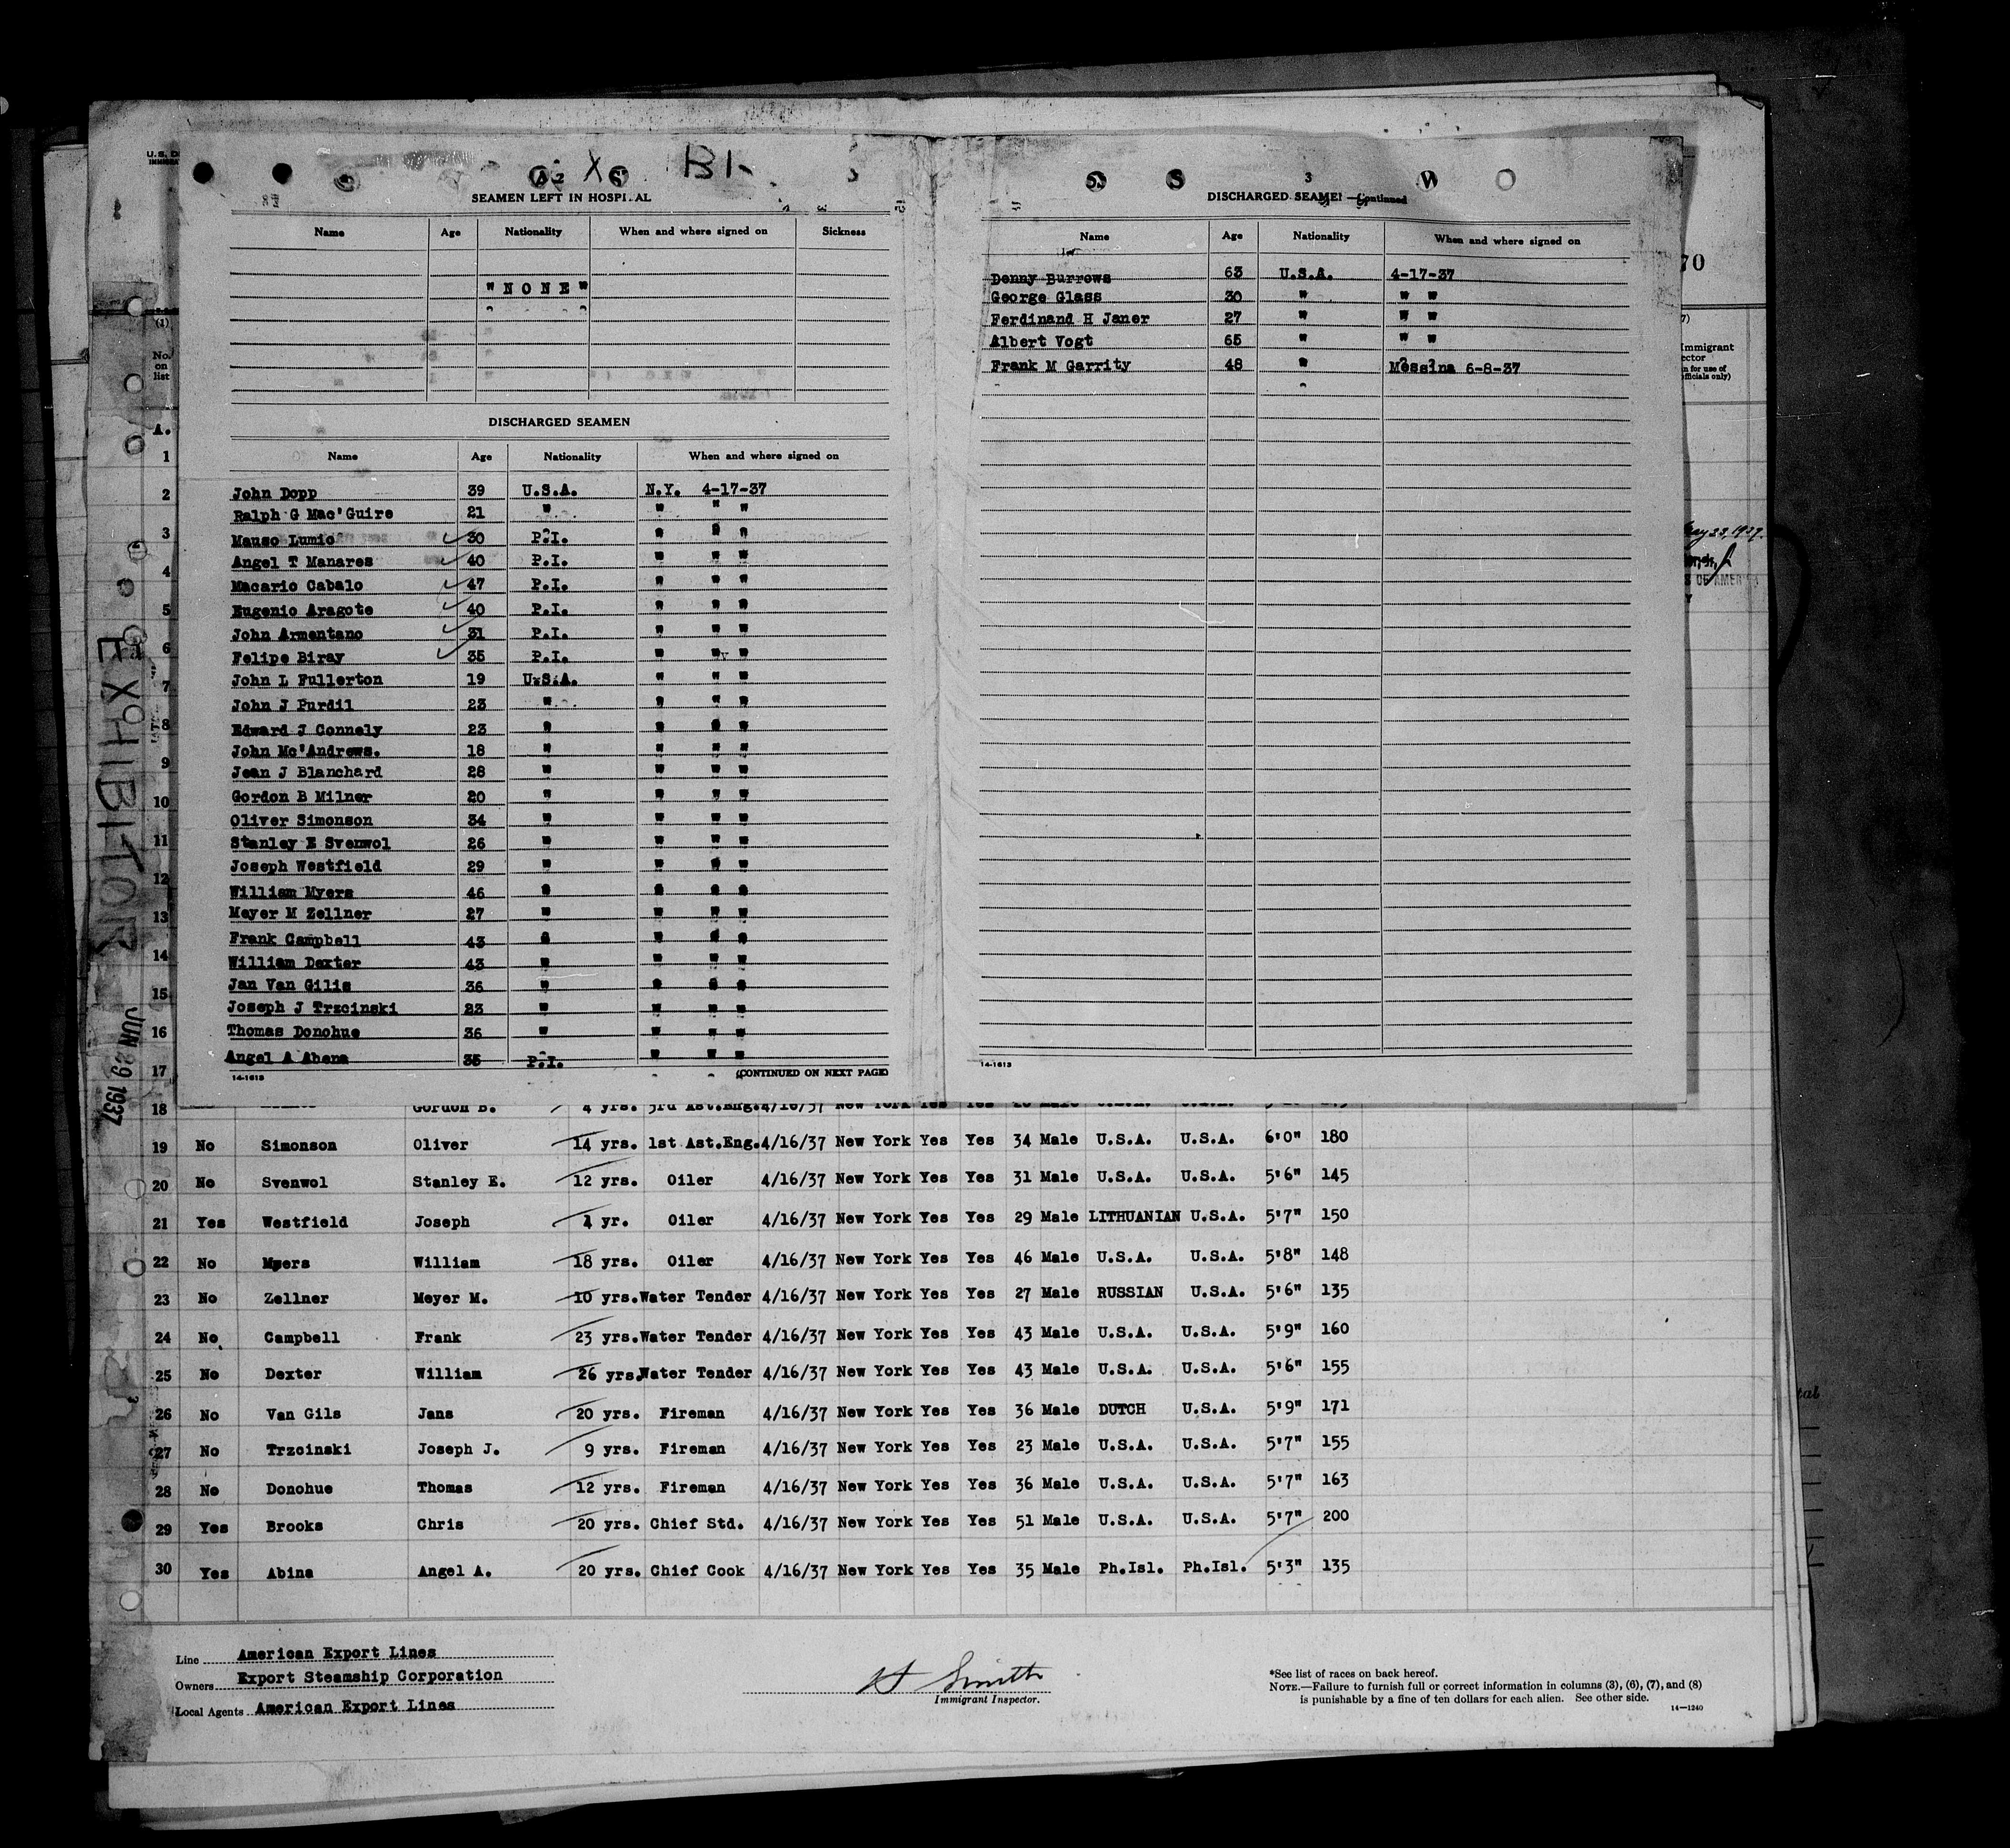 U.S. D
IMMIGRA
X BK
A 2 S
SEAMEN LEFT IN HOSPI AL
Name Age Nationality When and where signed on Sickness
"NONE"
DISCHARGED SEAMEN
Name Age Nationality When and where signed on
John Dopp 39 U.S.A. N.Y. 4-17-37
Ralph G Mac'Guire 21 " " " "
Mauso Lumio 30 P.I. " " "
Angel T Manares 40 P.I. " " "
Macario Cabalo 47 P.I. " " "
Eugenio Aragote 40 P.I. " " "
John Armentano 31 P.I. " " "
Felipe Biray 35 P.I. " " "
John L Fullerton 19 U.S.A. " " "
John J Purdil 23 " " " "
Edward J Connely 23 " " " "
John Mc'Andrews. 18 " " " "
Jean J Blanchard 28 " " " "
Gordon B Milner 20 " " " "
Oliver Simonson 34 " " " "
Stanley E Svenwol 26 " " " "
Joseph Westfield 29 " " " "
William Myers 46 " " " "
Meyer M Zellner 27 " " " "
Frank Campbell 43 " " " "
William Dexter 43 " " " "
Jan Van Gilis 36 " " " "
Joseph J Trzcinski 23 " " " "
Thomas Donohue 36 " " " "
Angel A Abena 35 P.I. " " "
14-1613 (CONTINUED ON NEXT PAGE)
S S 3 W
DISCHARGED SEAME —Continued
Name Age Nationality When and where signed on
Denny Burrows 63 U.S.A. 4-17-37
George Glass 30 " " "
Ferdinand H Janer 27 " " "
Albert Vogt 65 " " "
Frank M Garrity 48 " Messina 6-8-37
14-1613
70
7)
Immigrant
ector
n for use of
officials only)
ay 23, 1937.
S OF AMERICA
Y
tal
(1)
No.
on
list
A.
1
2
3
4
5
6
7
8
9
10
11
12
13
14
15
16
17
EXHIBITOR
JUN 29 1937
18 Gordon B. 4 yrs. 3rd Ast.Eng. 4/16/37 New York Yes Yes 20 Male U.S.A. U.S.A.
19 No Simonson Oliver 14 yrs. 1st Ast.Eng. 4/16/37 New York Yes Yes 34 Male U.S.A. U.S.A. 6'0" 180
20 No Svenwol Stanley E. 12 yrs. Oiler 4/16/37 New York Yes Yes 31 Male U.S.A. U.S.A. 5'6" 145
21 Yes Westfield Joseph 4 yr. Oiler 4/16/37 New York Yes Yes 29 Male LITHUANIAN U.S.A. 5'7" 150
22 No Myers William 18 yrs. Oiler 4/16/37 New York Yes Yes 46 Male U.S.A. U.S.A. 5'8" 148
23 No Zellner Meyer M. 10 yrs. Water Tender 4/16/37 New York Yes Yes 27 Male RUSSIAN U.S.A. 5'6" 135
24 No Campbell Frank 23 yrs. Water Tender 4/16/37 New York Yes Yes 43 Male U.S.A. U.S.A. 5'9" 160
25 No Dexter William 26 yrs. Water Tender 4/16/37 New York Yes Yes 43 Male U.S.A. U.S.A. 5'6" 155
26 No Van Gils Jans 20 yrs. Fireman 4/16/37 New York Yes Yes 36 Male DUTCH U.S.A. 5'9" 171
27 No Trzcinski Joseph J. 9 yrs. Fireman 4/16/37 New York Yes Yes 23 Male U.S.A. U.S.A. 5'7" 155
28 No Donohue Thomas 12 yrs. Fireman 4/16/37 New York Yes Yes 36 Male U.S.A. U.S.A. 5'7" 163
29 Yes Brooks Chris 20 yrs. Chief Std. 4/16/37 New York Yes Yes 51 Male U.S.A. U.S.A. 5'7" 200
30 Yes Abina Angel A. 20 yrs. Chief Cook 4/16/37 New York Yes Yes 35 Male Ph.Isl. Ph.Isl. 5'3" 135
Line American Export Lines
Owners Export Steamship Corporation
Local Agents American Export Lines
H Smith
Immigrant Inspector.
*See list of races on back hereof.
NOTE.—Failure to furnish full or correct information in columns (3), (6), (7), and (8)
is punishable by a fine of ten dollars for each alien. See other side.
14—1240